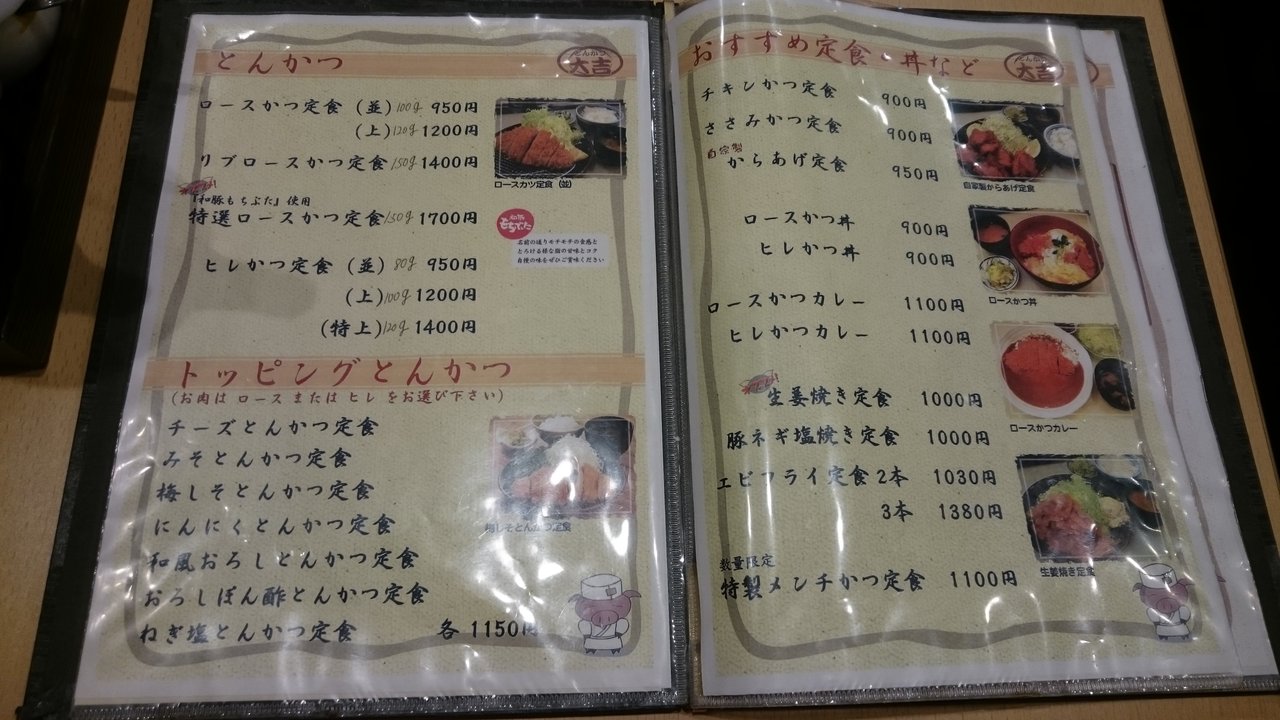 とんかつ
とんかつ
大吉
ロースかつ定食 (並) 100g 950円
(上) 120g 1200円
リブロースかつ定食 150g 1400円
『和豚もちぶた』使用
特選ロースかつ定食 150g 1700円
ヒレかつ定食 (並) 80g 950円
(上) 100g 1200円
(特上) 120g 1400円
ロースカツ定食 (並)
和豚
もちぶた
名前の通りモチモチの食感と
とろける様な脂の甘味とコク
自慢の味をぜひご賞味ください
トッピングとんかつ
(お肉は ロース または ヒレ をお選び下さい)
チーズとんかつ定食
みそとんかつ定食
梅しそとんかつ定食
にんにくとんかつ定食
和風おろしとんかつ定食
おろしぽん酢とんかつ定食
ねぎ塩とんかつ定食 各 1150円
梅しそとんかつ定食
おすすめ定食・丼など
とんかつ
大吉
チキンかつ定食 900円
ささみかつ定食 900円
自家製
からあげ定食 950円
ロースかつ丼 900円
ヒレかつ丼 900円
ロースかつカレー 1100円
ヒレかつカレー 1100円
生姜焼き定食 1000円
豚ネギ塩焼き定食 1000円
エビフライ定食 2本 1030円
3本 1380円
数量限定
特製メンチかつ定食 1100円
自家製からあげ定食
ロースかつ丼
ロースかつカレー
生姜焼き定食